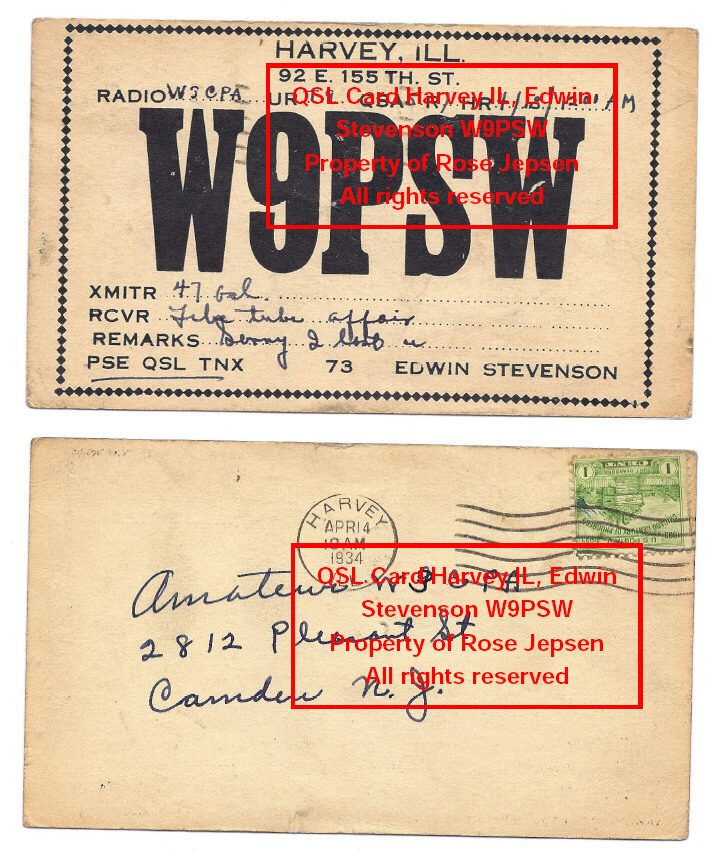 HARVEY, ILL.
92 E. 155 TH. ST.
RADIO W3CPA UR QSA R HR AM
QSL Card Harvey IL, Edwin
Stevenson W9PSW
Property of Rose Jepsen
All rights reserved
W9PSW
XMITR 47 osl.
RCVR tube affair
REMARKS Sorry I lost u
PSE QSL TNX 73 EDWIN STEVENSON
1 CENT 1
FORT DEARBORN
CHICAGO CENTURY OF PROGRESS
1833 U.S. POSTAGE 1933
HARVEY
APR 14
10 AM
1934
ILL.
QSL Card Harvey IL, Edwin
Stevenson W9PSW
Property of Rose Jepsen
All rights reserved
Amateur W3CPA
2812 Pleasant St
Camden N. J.